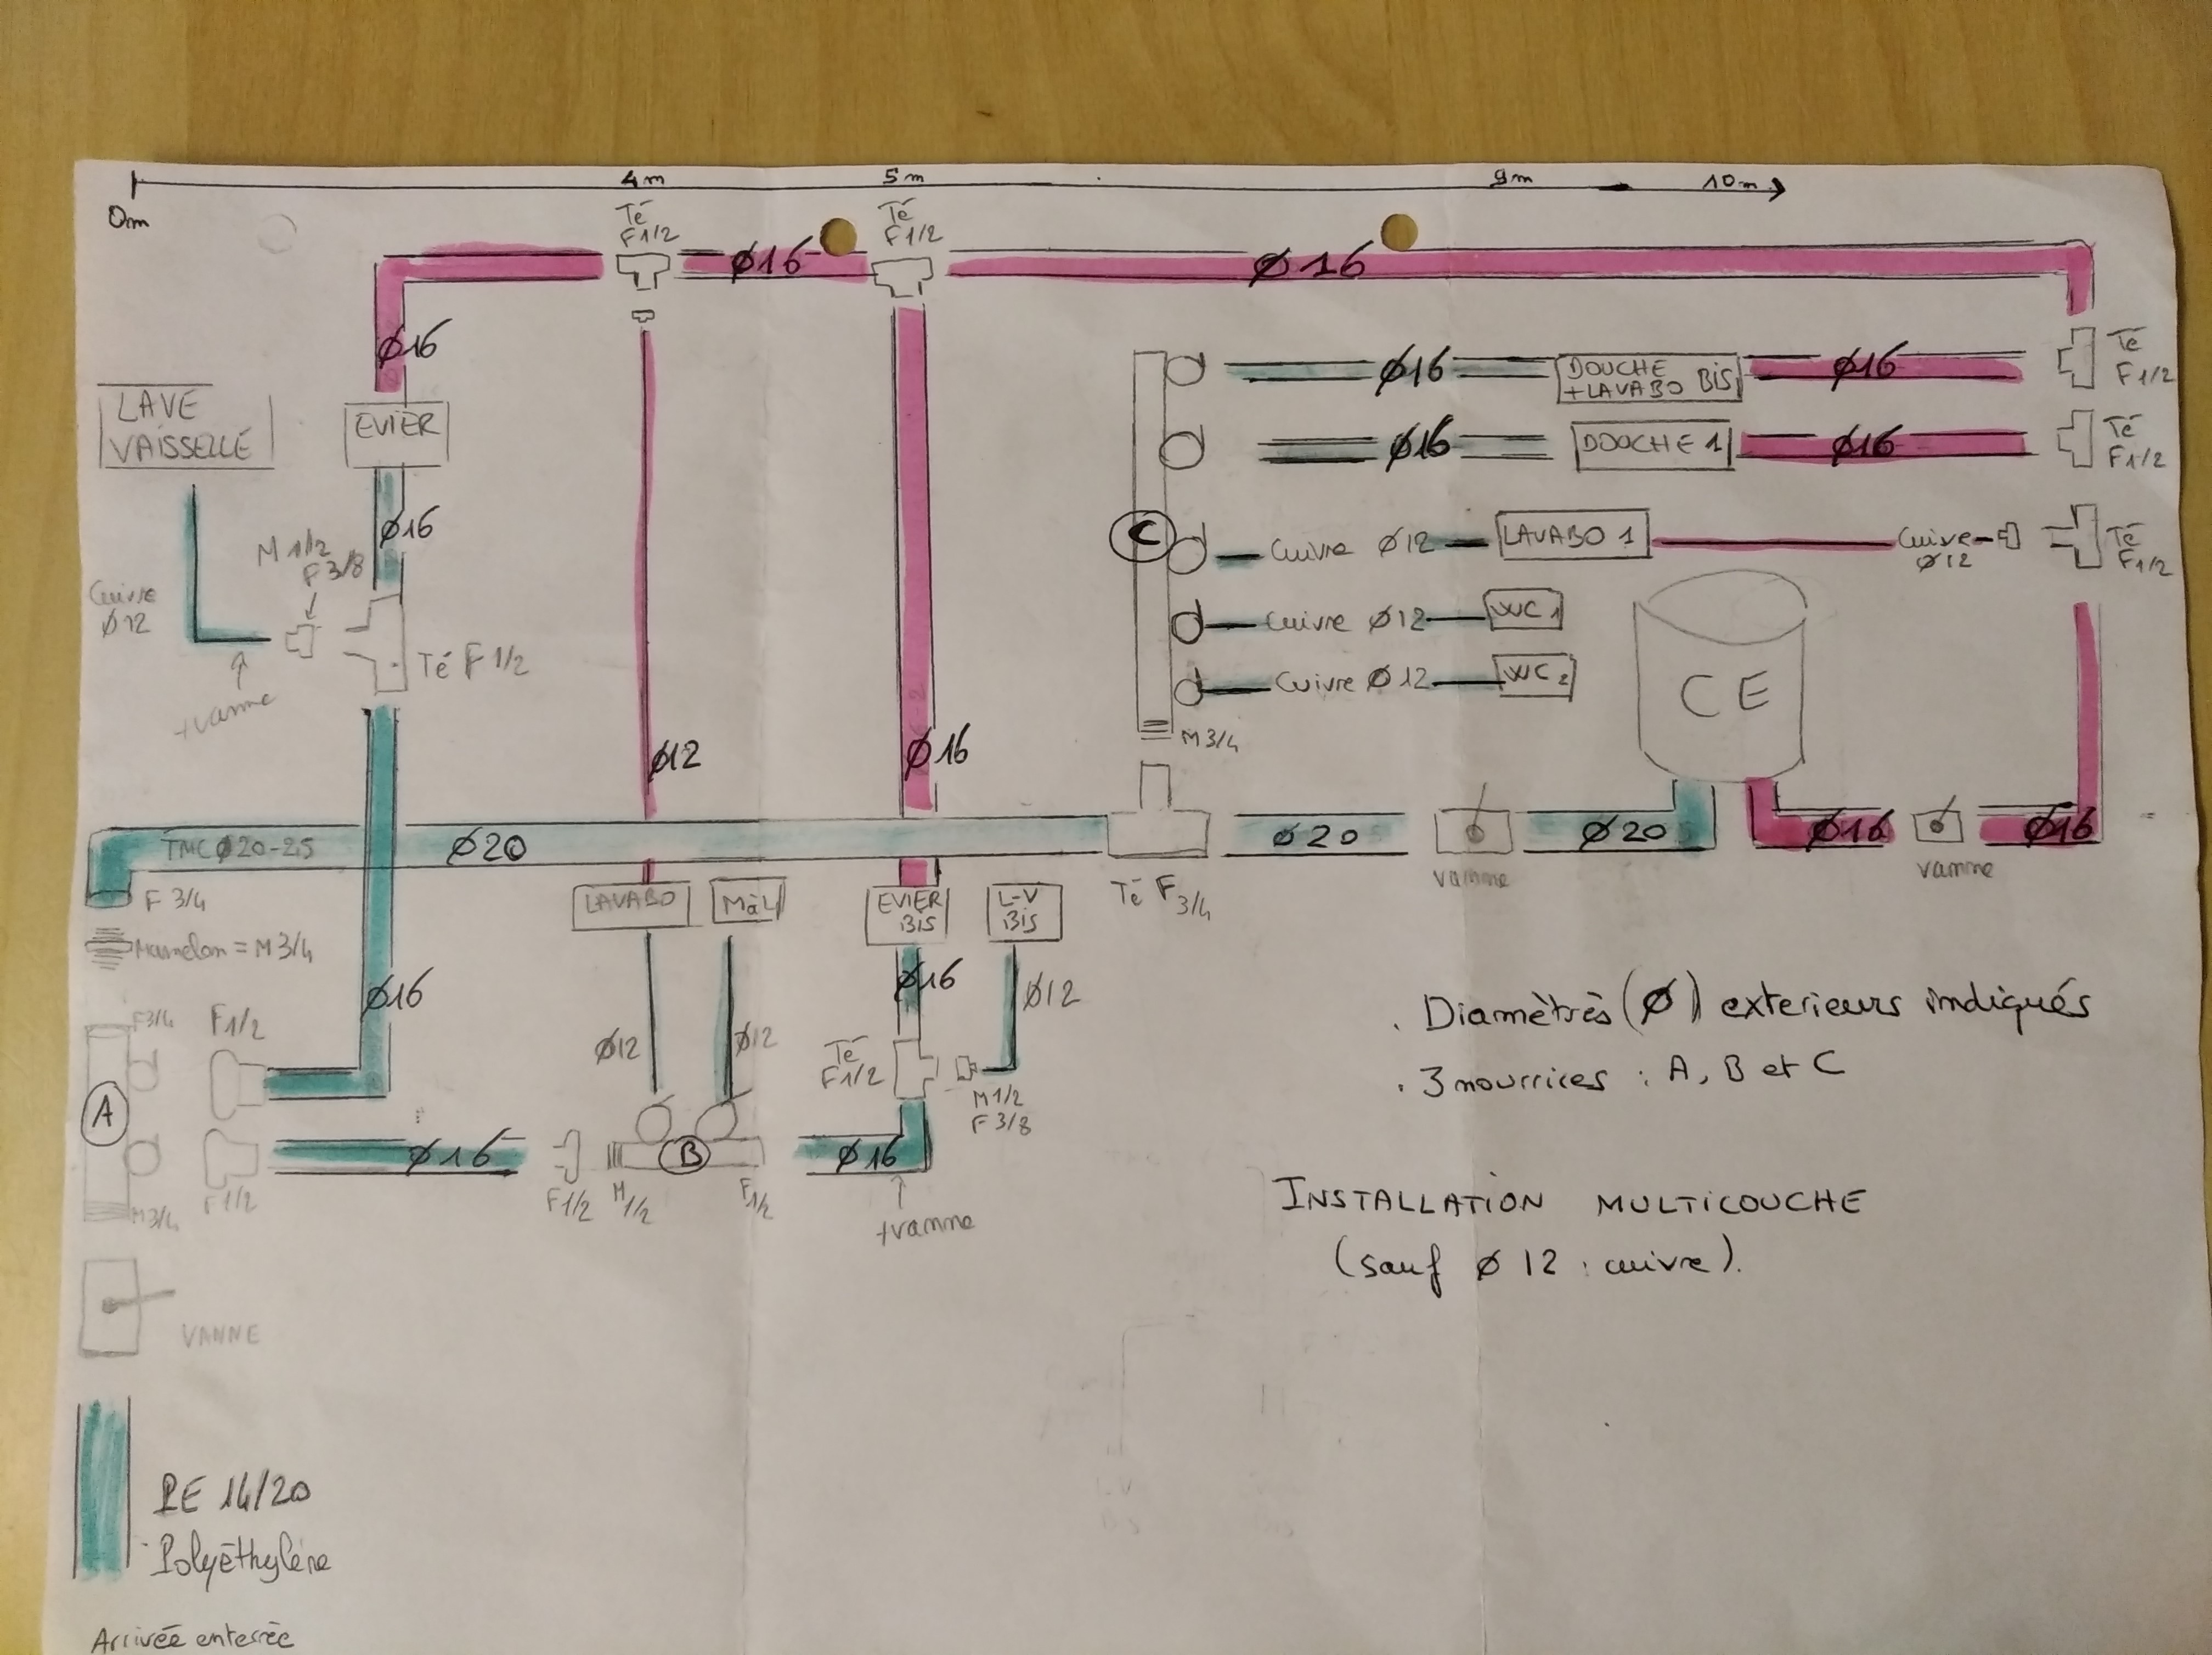 0m
4m
5m
9m
10m
Té
F1/2
Té
F1/2
ø16
ø16
ø16
LAVE
VAISSELLE
EVIER
ø16
M 1/2
F 3/8
Cuivre
ø12
Té F 1/2
+vanne
ø12
ø16
C
ø16
DOUCHE
+LAVABO BIS
ø16
Té
F1/2
ø16
DOUCHE 1
ø16
Té
F1/2
Cuivre ø12
LAVABO 1
Cuivre
ø12
Té
F1/2
Cuivre ø12
WC 1
Cuivre ø12
WC 2
M3/4
CE
TMC ø20-2,5
ø20
ø20
vanne
ø20
ø16
vanne
ø16
Té F 3/4
F 3/4
Mamelon = M 3/4
LAVABO
MàL
EVIER
BIS
L-V
BIS
ø16
ø12
ø12
ø16
ø12
F3/4
F1/2
A
Té
F1/2
M1/2
F 3/8
ø16
B
ø16
M3/4
F1/2
F1/2
M 1/2
F1/2
+vanne
VANNE
PE 14/20
Polyéthylène
Arrivée enterrée
. Diamètrès (ø) exterieurs indiqués
. 3 nourrices : A, B et C
INSTALLATION MULTICOUCHE
(sauf ø 12 : cuivre).